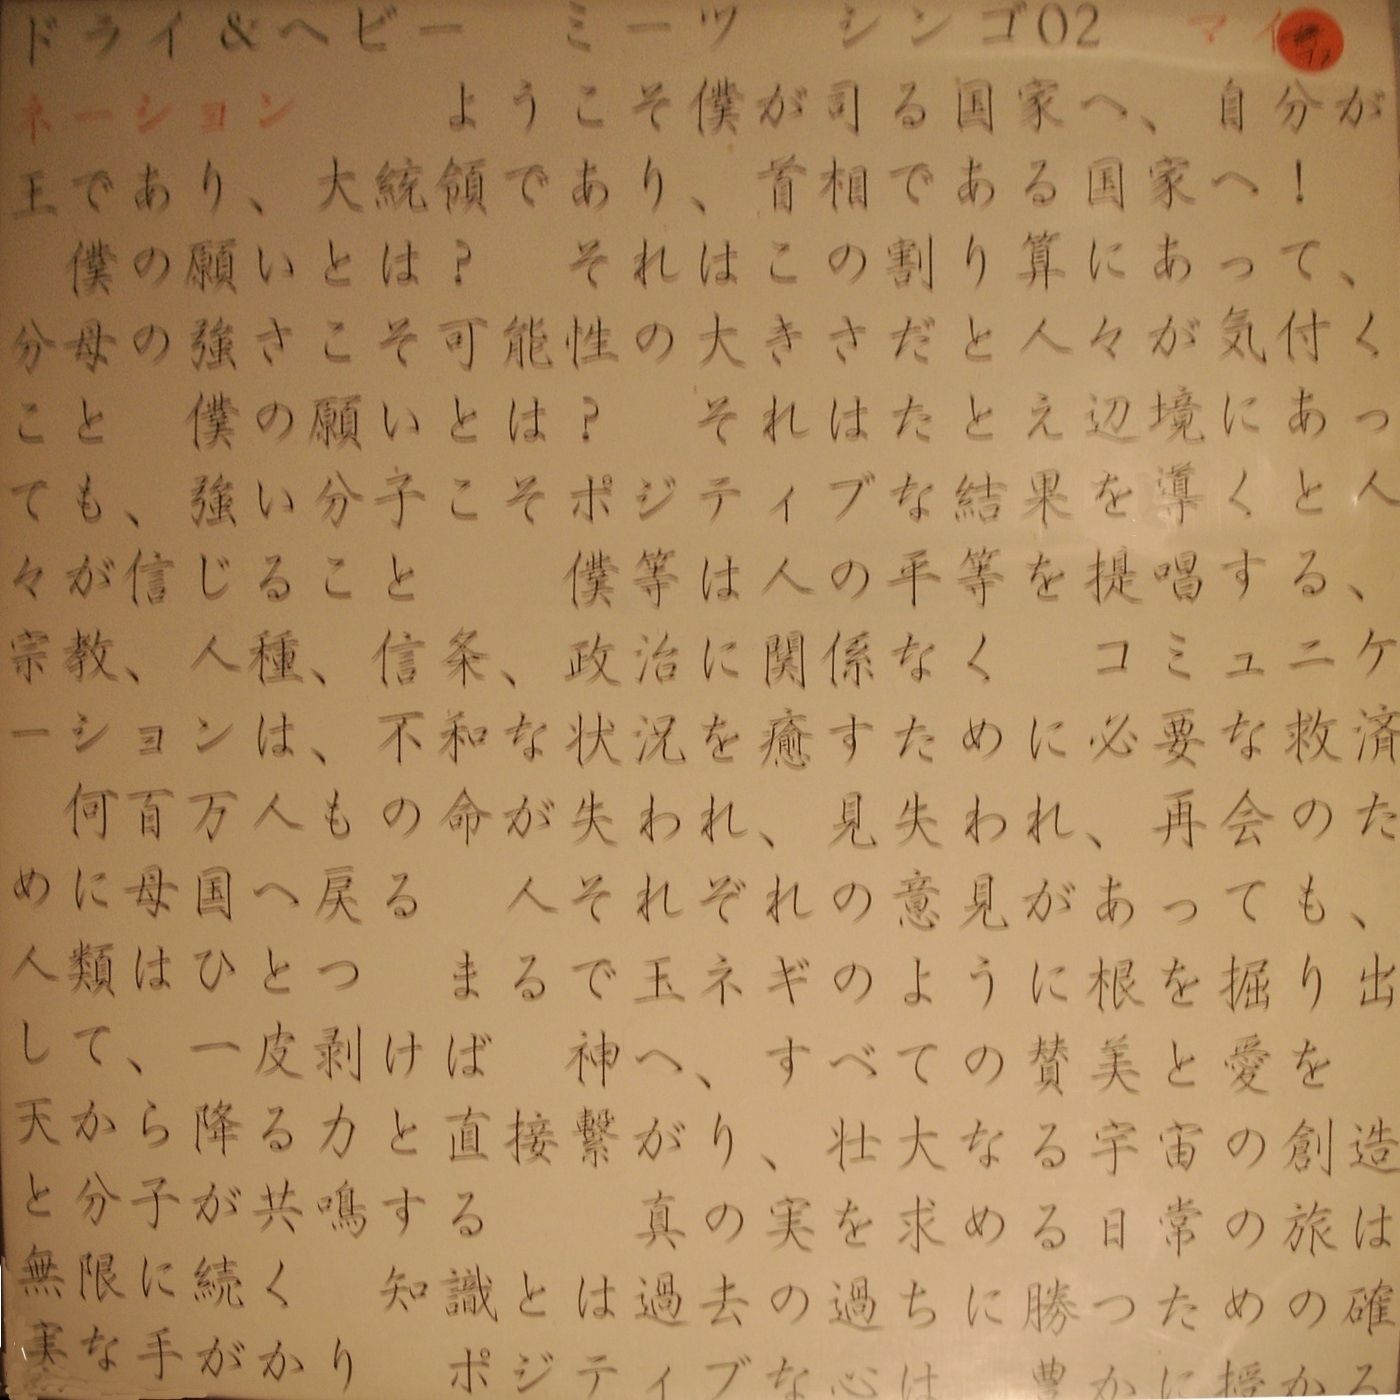 ドライ＆ヘビー　ミーツ　シンゴ02　マイ
ネーション　　ようこそ僕が司る国家へ、自分が
王であり、大統領であり、首相である国家へ！
僕の願いとは？　それはこの割り算にあって、
分母の強さこそ可能性の大きさだと人々が気付く
こと　僕の願いとは？　それはたとえ辺境にあっ
ても、強い分子こそポジティブな結果を導くと人
々が信じること　　僕等は人の平等を提唱する、
宗教、人種、信条、政治に関係なく　コミュニケ
ーションは、不和な状況を癒すために必要な救済
何百万人もの命が失われ、見失われ、再会のた
めに母国へ戻る　人それぞれの意見があっても、
人類はひとつ　まるで玉ネギのように根を掘り出
して、一皮剥けば　神へ、すべての賛美と愛を
天から降る力と直接繋がり、壮大なる宇宙の創造
と分子が共鳴する　　真の実を求める日常の旅は
無限に続く　知識とは過去の過ちに勝つための確
実な手がかり　ポジティブな心は　豊かに授かる